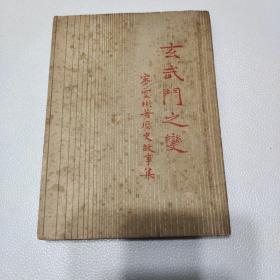 玄武門之變
寥雲將著歷史故事集